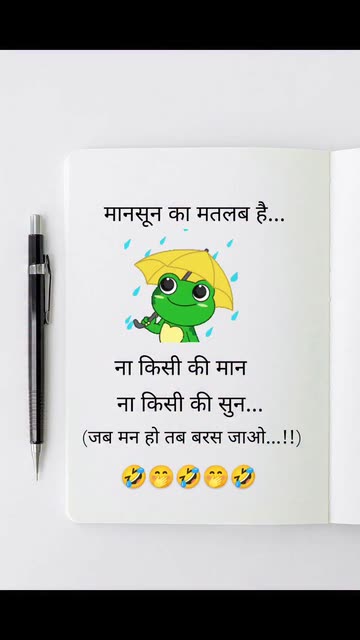 मानसून का मतलब है...
ना किसी की मान
ना किसी की सुन...
(जब मन हो तब बरस जाओ...!!)
🤣🤭🤣🤭🤣